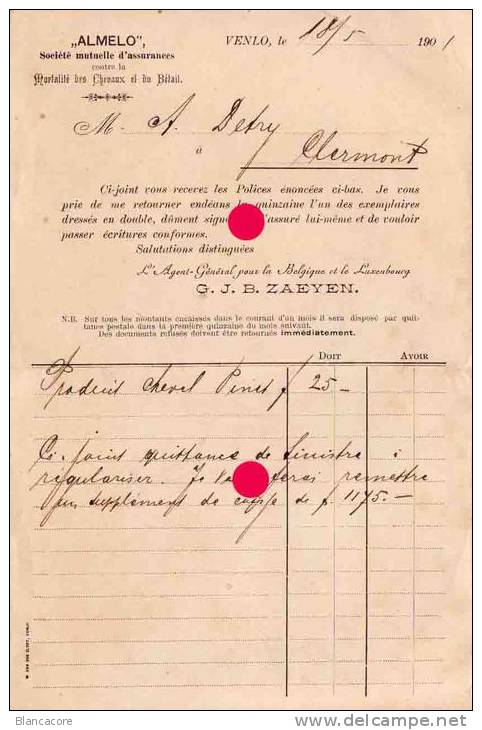 „ALMELO”,
Société mutuelle d'assurances
contre la
Mortalité des Chevaux et du Bétail.
VENLO, le 18/5 1901
M. A. Detry
à
Clermont
Ci-joint vous recevrez les Polices énoncées ci-bas. Je vous
prie de me retourner endéans la quinzaine l'un des exemplaires
dressés en double, dûment signé l'assuré lui-même et de vouloir
passer écritures conformes.
Salutations distinguées
L'Agent-Général pour la Belgique et le Luxembourg
G. J. B. ZAEYEN.
N.B. Sur tous les montants encaissés dans le courant d'un mois il sera disposé par quit-
tance postale dans la première quinzaine du mois suivant.
Des documents refusés doivent être retournés immédiatement.
DOIT AVOIR
Produit cheval f 25 —
Ci-joint quittance de sinistre à
régulariser. Je ferai remettre
un supplément de de f. 1175.—
Blancacore
www.delcampe.net